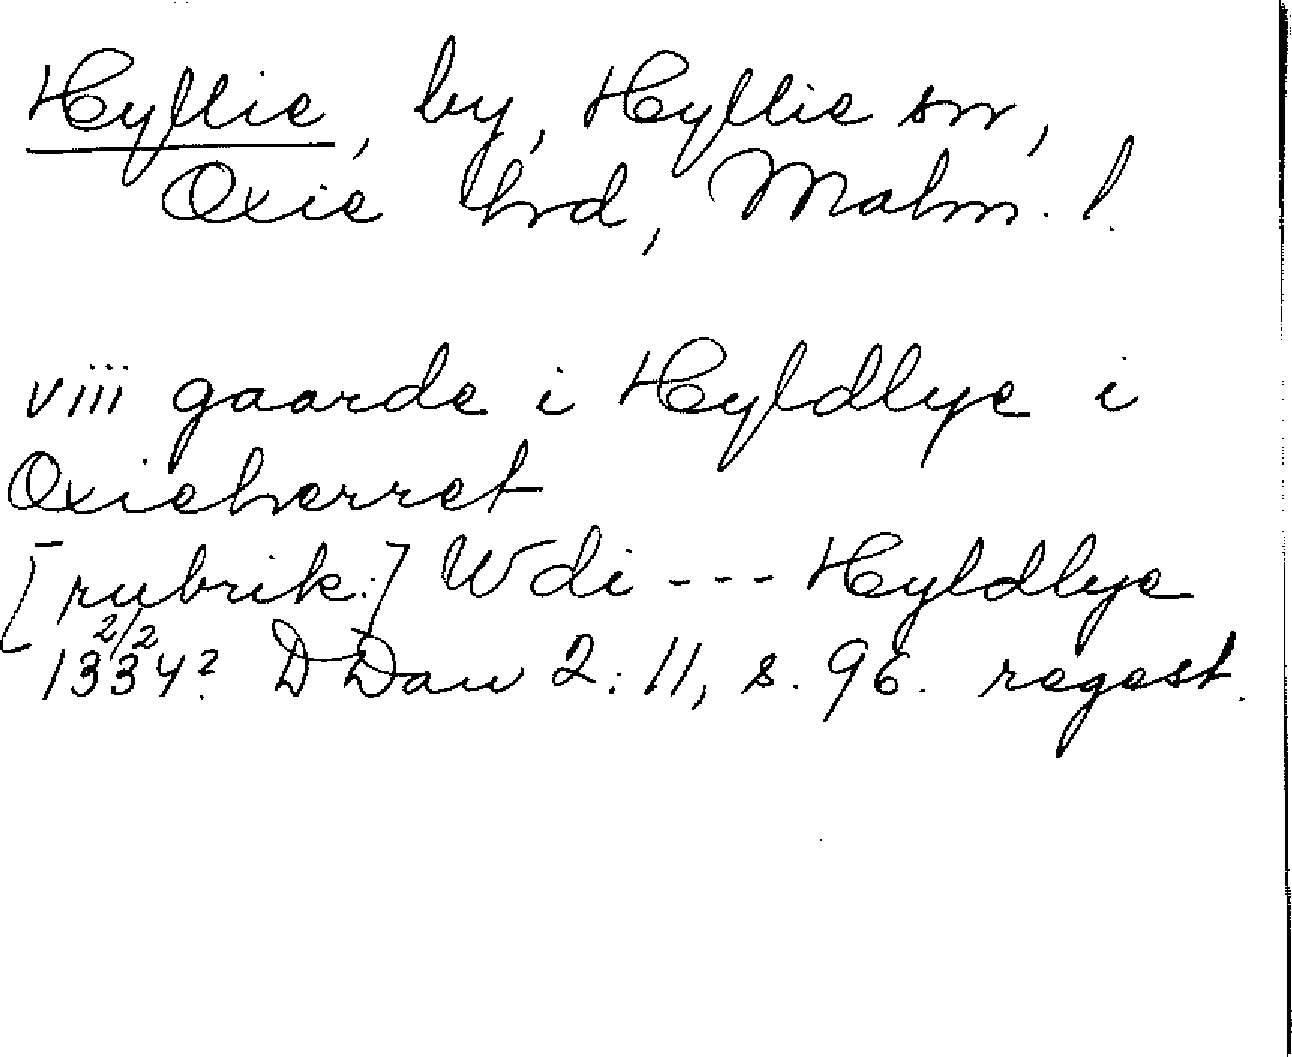 Hyllie, by, Hyllie sn,
Oxie hrd, Malm. l.
viii gaarde i Hyldlye i
Oxieherret
[rubrik:] Wdi --- Hyldlye
2/2
1334? DDan 2:11, s. 96. regest.